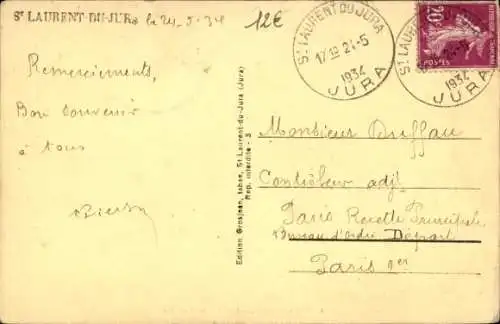 St LAURENT-DU-JURA le 24-5-34
12€
St LAURENT DU JURA
17 H 24-5
1934
JURA
St LAUREN
1934
JURA
20c
POSTES
Remerciements,
Bon souvenir
à tous
Edition Grosjean, tabac, St-Laurent-du-Jura (Jura)
Rep. interdite - 3
Monsieur Duffau
Contrôleur adj.
Paris Recette Principale
Bureau d'ordre Départ
Paris 1er